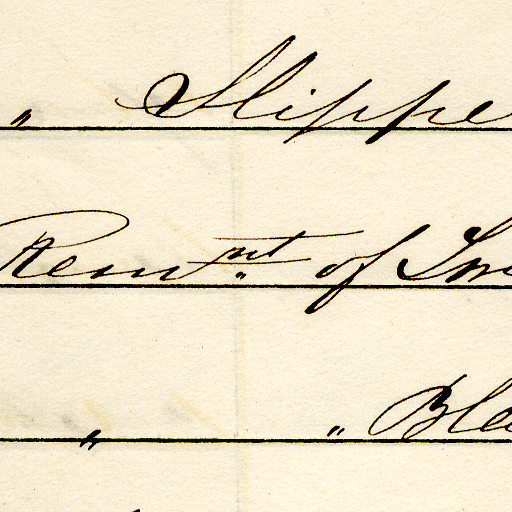 " Slippe
Remnt of
" " Ble